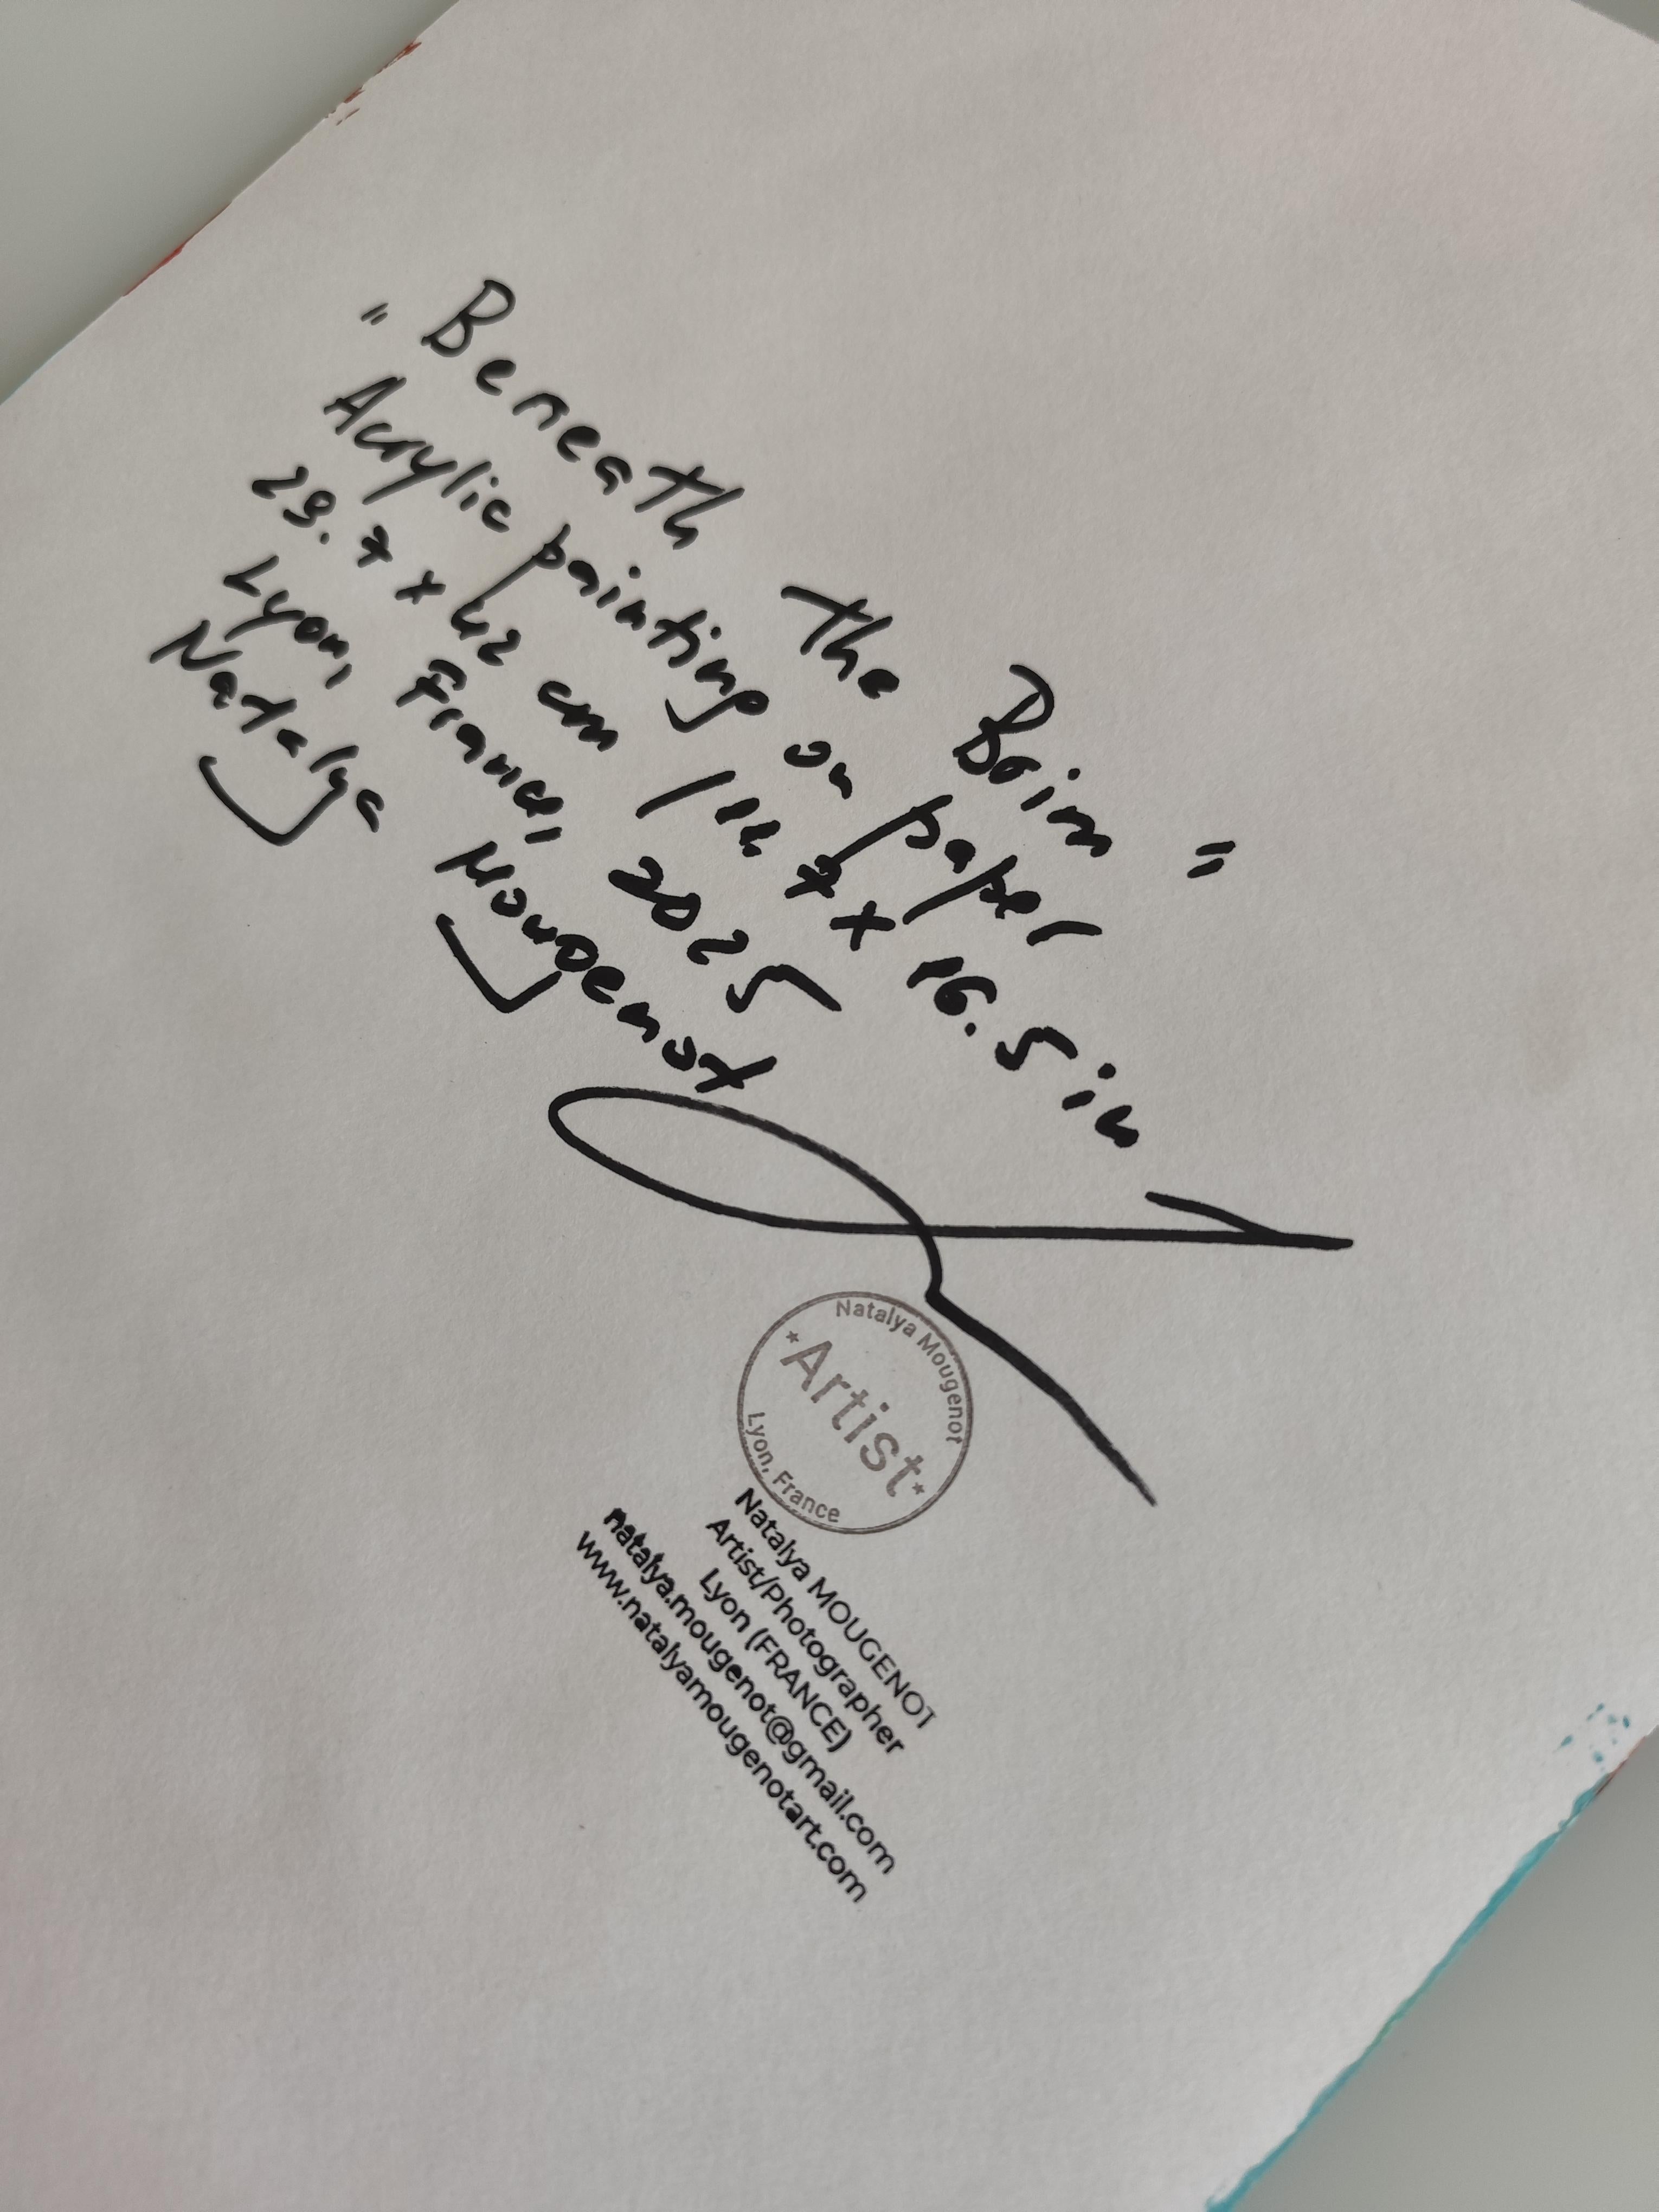 "Beneath the Brim"
Acrylic painting on paper
29.7 x 42 cm / 11.7 x 16.5 in
Lyon, France, 2025
Natalya Mougenot
Natalya Mougenot
*Artist*
Lyon, France
Natalya MOUGENOT
Artist/Photographer
Lyon (FRANCE)
natalya.mougenot@gmail.com
www.natalyamougenotart.com